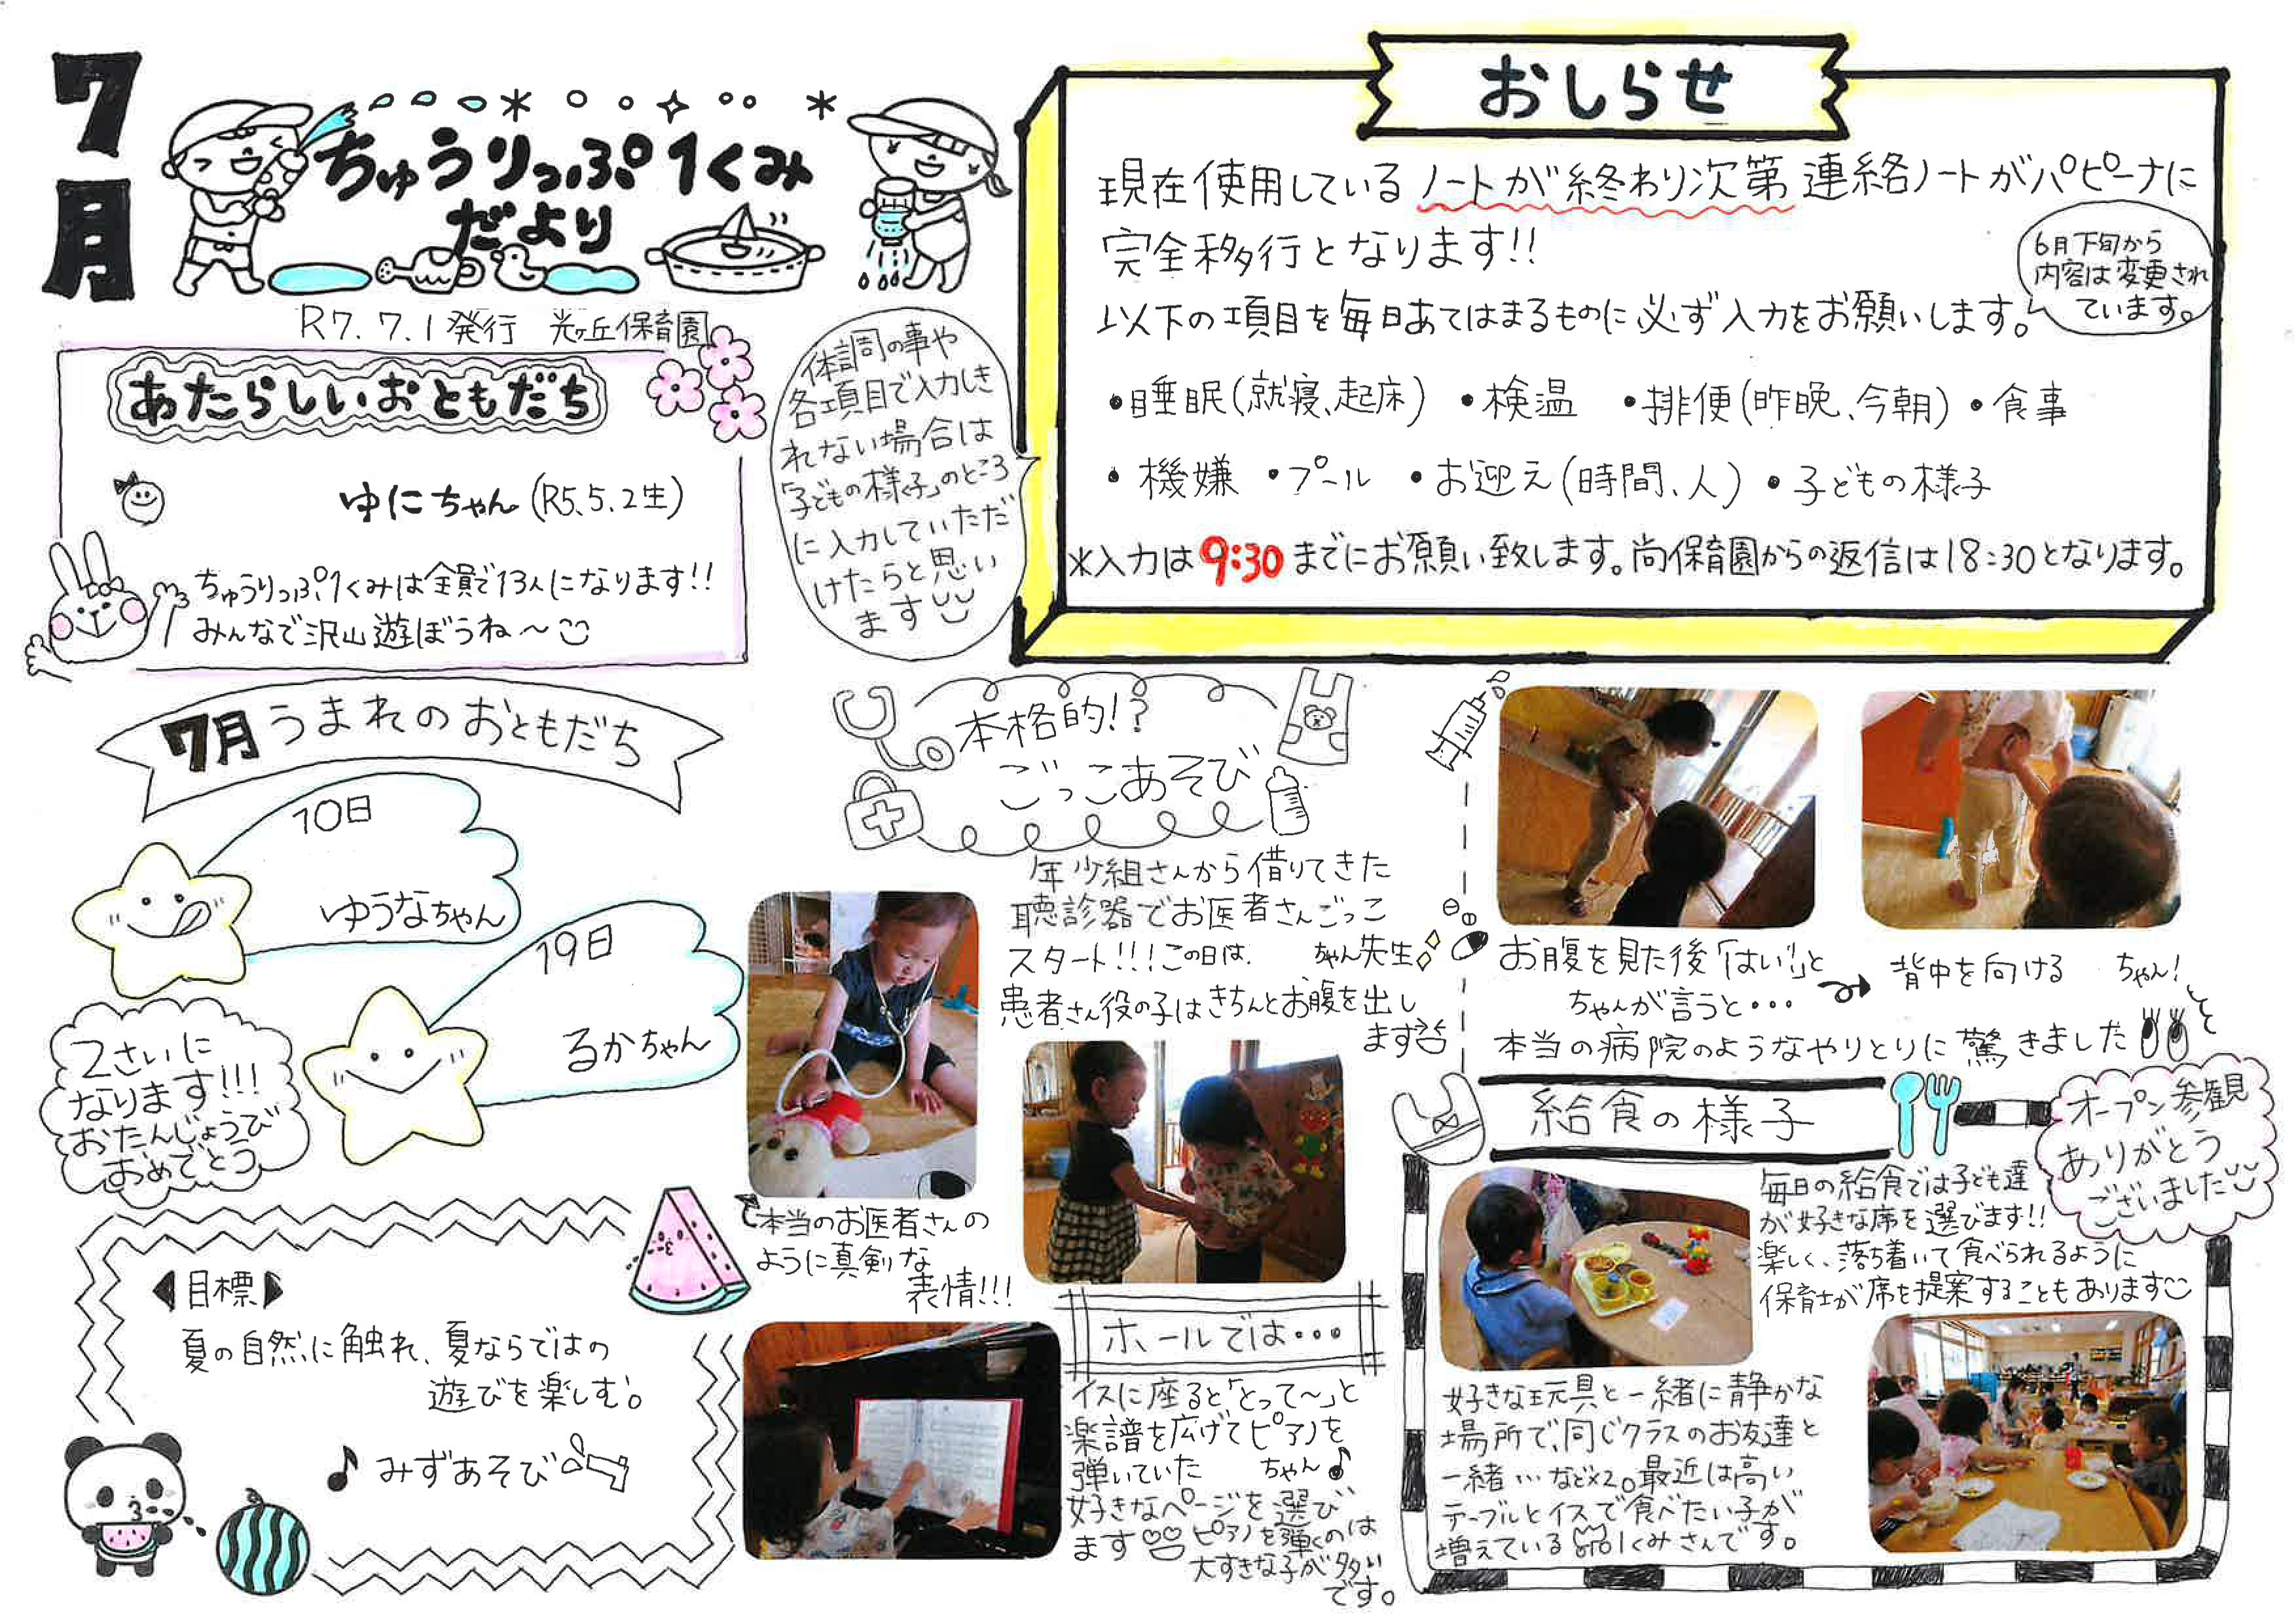 7月
ちゅうりっぷ1くみ
だより
R7.7.1発行 光ヶ丘保育園
あたらしいおともだち
ゆにちゃん(R5.5.2生)
ちゅうりっぷ1くみは全員で13人になります!!
みんなで沢山遊ぼうね～
おしらせ
現在使用しているノートが終わり次第連絡ノートがパピーナに
完全移行となります!!
6月下旬から
内容は変更され
ています。
以下の項目を毎日あてはまるものに必ず入力をお願いします。
・睡眠(就寝、起床) ・検温 ・排便(昨晩、今朝) ・食事
・機嫌 ・プール ・お迎え(時間、人) ・子どもの様子
※入力は9:30までにお願い致します。尚保育園からの返信は18:30となります。
体調の事や
各項目で入力しき
れない場合は
「子どもの様子」のところ
に入力していただ
けたらと思い
ます
7月うまれのおともだち
10日
ゆうなちゃん
19日
るかちゃん
2さいに
なります!!!
おたんじょうび
おめでとう
目標
夏の自然に触れ、夏ならではの
遊びを楽しむ。
♪ みずあそび
本格的!?
ごっこあそび
年少組さんから借りてきた
聴診器でお医者さんごっこ
スタート!!!この日は、 ちゃん先生
患者さん役の子はきちんとお腹を出し
ます
本当のお医者さんの
ように真剣な
表情!!!
お腹を見た後「はい!」と
ちゃんが言うと・・・
背中を向ける ちゃん!
本当の病院のようなやりとりに驚きました
ホールでは・・・
イスに座ると「とって～」と
楽譜を広げてピアノを
弾いていた ちゃん♪
好きなページを選び
ます ピアノを弾くのは
大すきな子が多い
です。
給食の様子
オープン参観
ありがとう
ございました
毎日の給食では子ども達
が好きな席を選びます!!
楽しく、落ち着いて食べられるように
保育士が席を提案することもあります
好きな玩具と一緒に静かな
場所で、同じクラスのお友達と
一緒…など×2。最近は高い
テーブルとイスで食べたい子が
増えている 1くみさんです。